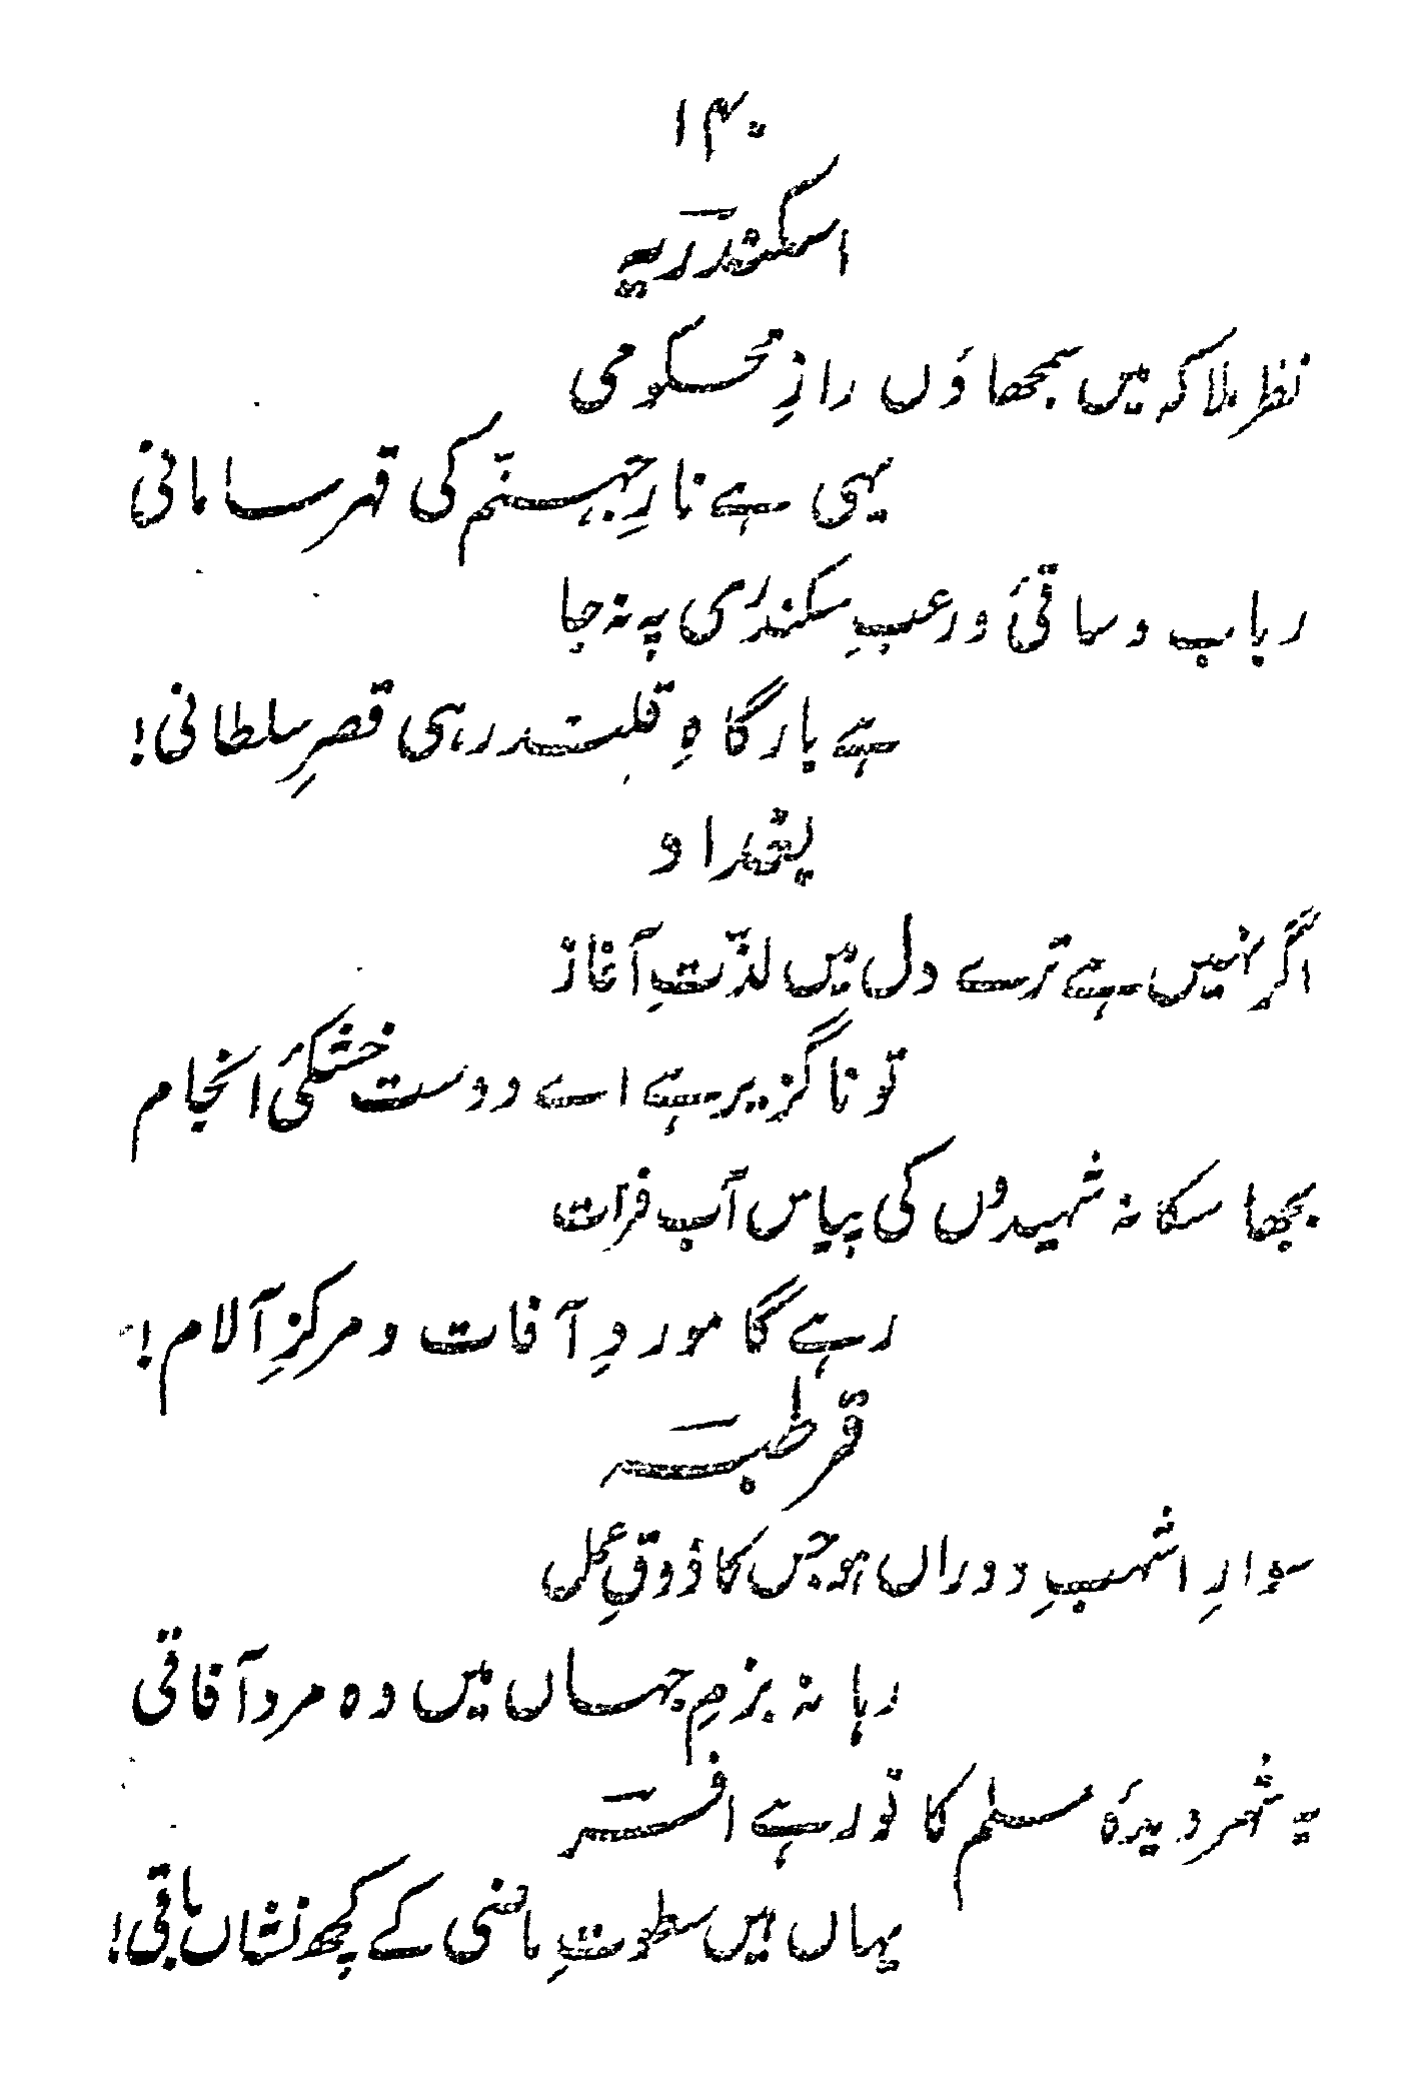 ۱۴۰
اسکندریہ
نظر ملا کہ میں سمجھاؤں رازِ محکومی
یہی ہے نارِ جہنّم کی قہر سامانی
رباب و ساقیٔ و رعبِ سکندری پہ نہ جا
ہے بارگاہِ قلندر ہی قصرِ سلطانی!
بغداد
اگر نہیں ہے ترے دل میں لذّتِ آغاز
تو ناگزیر ہے اے دوست خشکیٔ انجام
بجھا سکا نہ شہیدوں کی پیاس آب فرات
رہے گا موردِ آفات و مرکزِ آلام!
قرطبہ
سوارِ اشہبِ دوراں ہو جس کا ذوقِ عمل
رہا نہ بزمِ جہاں میں وہ مرد آفاقی
یہ شہر دیدۂ مسلم کا نور ہے افسر
یہاں ہیں سطوتِ ماضی کے کچھ نشاں باقی!